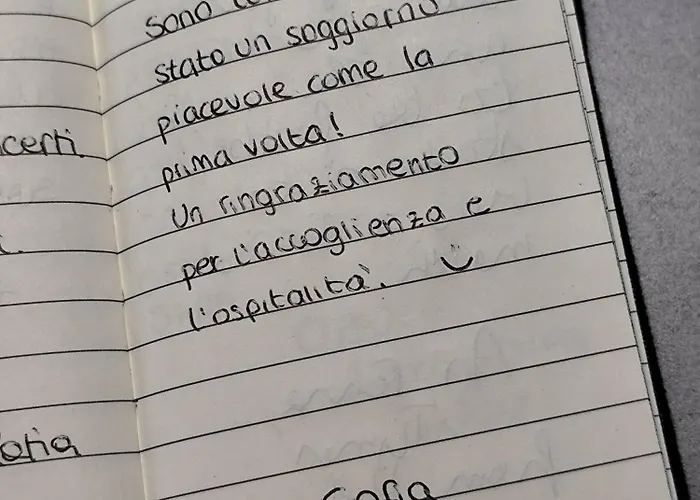 certi
sono
stato un soggiorno
piacevole come la
prima volta!
un ringraziamento
per l'accoglienza e
l'ospitalità.